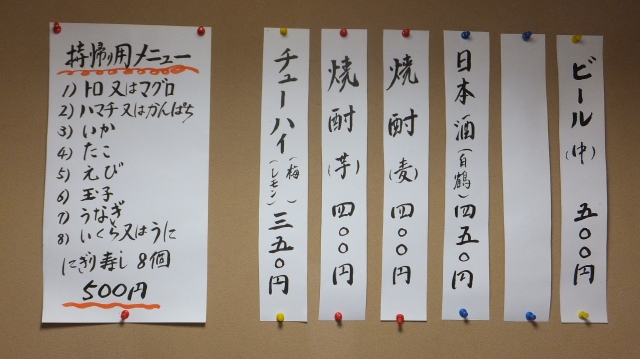 持帰り用メニュー
1) トロ又はマグロ
2) ハマチ又はかんぱち
3) いか
4) たこ
5) えび
6) 玉子
7) うなぎ
8) いくら又はうに
にぎり寿し 8個
500円
ビール(中) 五〇〇円
日本酒(白鶴) 四五〇円
焼酎(麦) 四〇〇円
焼酎(芋) 四〇〇円
チューハイ(梅)(レモン) 三五〇円